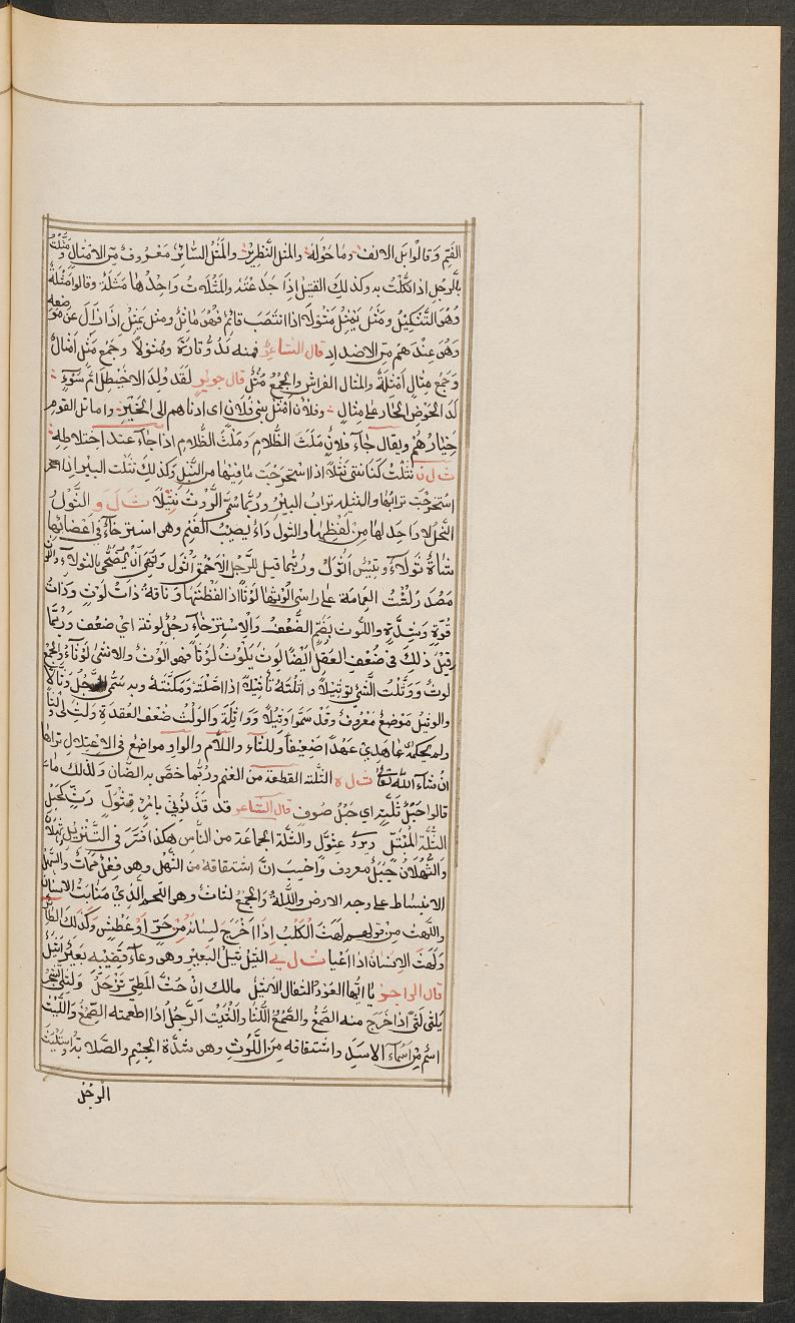 الفَمِ وَقالُوا بَل الانف وما حَوْلَهُ والمثل النَّظِير والمَثَلُ السَّائِرُ مَعْرُوفٌ مِنَ الامْثالِ ومَثَّلْتُ
بالرَّجُلِ اذا نَكَّلْتَ به وكذلِكَ القتيل اِذَا جَدَعْتَهُ والمَثُلَاتُ وَاحِدُها مَثُلَة وقالوا مُثْلَةٌ
وَهُوَ التَّنْكِيْلُ ومَثَلَ يَمْثُلُ مُثُولًا اذا انتَصَبَ قائِمًا فَهُوَ مَاثِلٌ ومثل يمثل إذَا زَالَ عَنْ موضعه
وَهُوَ عِنْدَهُم مِنَ الاضداد قال الشاعر فمنه بَدُوٌّ تَارَةً ومُثولاً وجَمْعُ مَثَلٍ أمْثالٌ
وَجَمْعُ مِثالٍ اَمْثِلَةٌ والمثال الفراش والجمع مُثُلٌ قال جرير لَقَد وَلَدَ الاخَيْطِلَ امُّ سَوْءٍ
لَدَى الحَوْضِ الحمار على مِثالِ وفلان اَمْثَلُ بَنِي فُلانٍ اى ادناهم الى الخَيْرِ واماثل القوم
خِيَارُهُمْ ويقال جاء فلانٌ مَلَثَ الظَّلَامِ ومَلْثَ الظَّلامِ اذا جَاءَ عند اختلاطِهِ
ث ل ن نَثَلْتُ كِنَانتى نَثْلًا اذا استخرجت ما فيها من النَّبْلِ وكذلِكَ نَثَلت البئر اذا
استخرجت ترابها والنثيلة تراب البئر ورُبَّما سُمِّيَ الرَّوْثُ نَثِيْلًا ث ل و الثَّوْلُ
النَّحل لا واحد لها من لفظها والثول دَاءٌ يصيب الغَنَم وهو استرخاءٌ في اعضائها
شاةٌ ثَوْلَاءُ وتَيْسٌ اَثْوَلُ ورُبَّما قيل للرَّجُل الاحْمَقِ اَثْوَل ونُهِىَ اَنْ يُضَحَّى بالثولاء واللَّوْث
مَصْدَر لُثْتُ العِمَامَة على راسى الوثها لَوْثًا اذا لَفَفْتَها وناقةٌ ذاتُ لَوْثٍ وذاتُ
قُوَّةٍ وشِدَّةٍ واللُّوث بِضَمٍّ الضُّعْفُ والاسْتِرْخاء رَجُلٌ لوثة اى ضعف ورُبَّما
قيل ذلك فى ضُعْفِ العقل ايضًا لَوِثَ يَلْوَثُ لَوْثًا فهو اَلْوَثُ والانثى لَوْثَاءُ والجمع
لُوثٌ ووَثَّلْتُ الشَّيْءَ تَوْثِيْلًا واَثَّلْتُهُ تَأْثِيْلًا اذا اَصَّلْتَهُ ومَكَّنْتَهُ وبه سُمِّيَ الرَّجُلُ وَثَّالًا
والوثيل مَوْضِعٌ مَعْرُوْفٌ وقَدْ سَمَّوا وَثِيْلًا وَوَاثِلَة والوَلْثُ ضعف العُقْدَةِ وَلَثَ لى وَلْثًا
ولم يحكمه عاهدنى عَهْدًا ضَعِيفًا وللثاء واللَّام والواو مواضِع في الاعتلال تراها
ان شاء اللّٰه تعالى ث ل ه الثلَّة القطعة من الغنم ورُبَّما خصَّ به الضأن ولذلك ما
قالوا حَبْلُ ثَلَّةٍ اى حَبْلُ صُوفٍ قال الشاعر قد قَذَنوْنِي بامْرِ قِثْوَلِّ رَثٍّ كَحَبْلِ
الثَّلَّة المُبْتَلِّ ويروى عِثْوَلّ والثُّلَّة الجماعة من النَّاس هكذا فُسِّرَ فى التَّنْزِيْلِ
وَالثَّهْلَانُ جَبَلٌ معروف وَاحسِبُ انَّ اشتقاقه من الثَّهَل وهو فِعْلٌ مُمَاتٌ والثهل
الانبساط على وجه الارض واللِّثَةُ والجَمعُ لثاتٌ وهو اللَّحم الذي منابتُ الاسنان
واللَّهَثُ مِن قولهم لَهَثَ الكَلْبُ اِذَا أخْرَجَ لِسانَهُ مِنْ حَرٍّ اَوْ عَطَشٍ وكذلكَ الطائر
وَلَهَثَ الانسان اذا اَعْيا ث ل ي الثِّيْل ثِيْلُ البَعِيْر وهو وعاءُ قَضِيْبِه بَعيرٌ اَثْيَلُ
قال الراجز يا ايُّها العَوْد الثَّقال الاثيَلُ مالك اِنْ حَثَّ المَطِيَّ تَزْحَلُ وَلَثِيَ الشَّجَرُ
يَلْثَى لَثًى اذا خَرَجَ منه الصَّمْغُ والصَّمْغُ اللَّثَا واَلْثَيْتُ الرَّجُلَ اذا اطعمته الصَّمْغ واللَّيْث
اسْمٌ مِنْ اسْمَاءِ الاسَدِ واشتقاقه مِنَ اللَّوْثِ وهى شدَّة الجِسْمِ والصَّلابَةُ واستَلْيَثَ
الرجُلُ